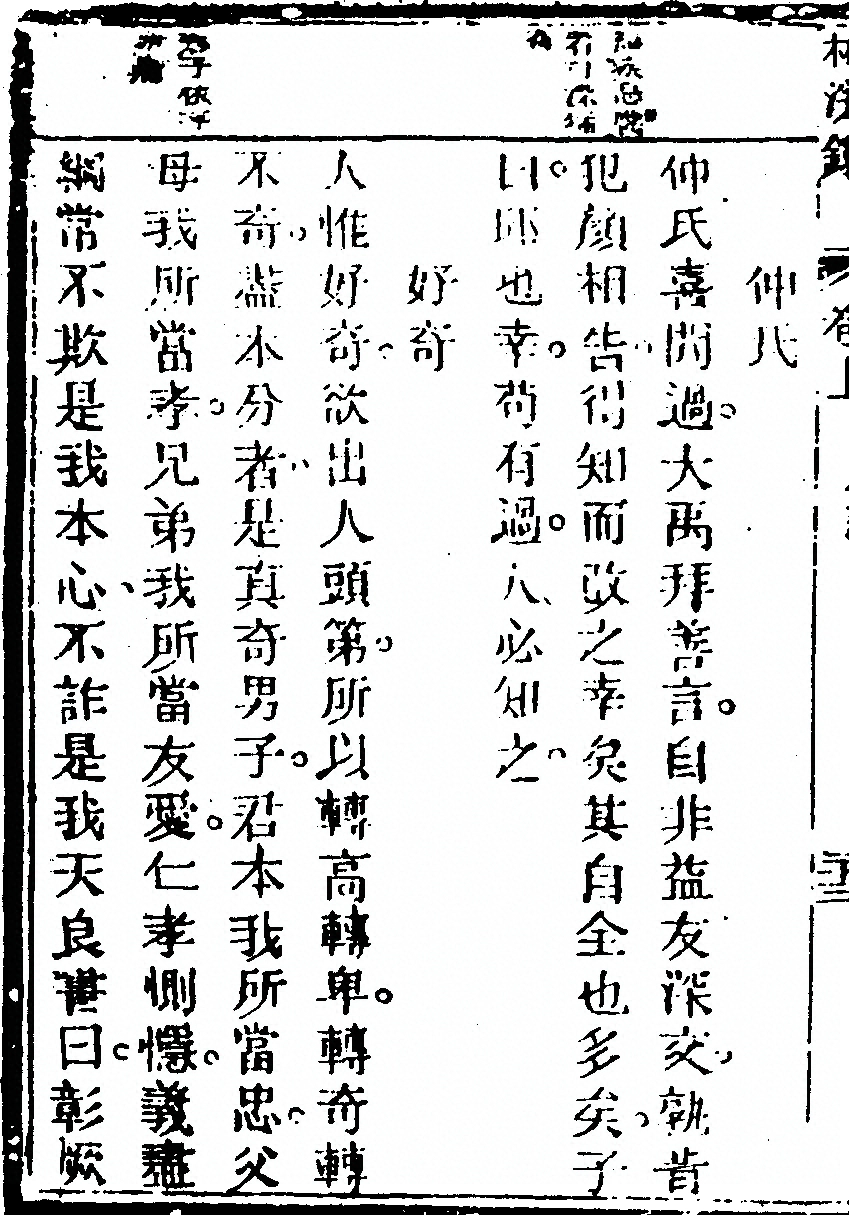 仲氏
仲氏喜聞過大禹拜善言自非益友深交孰肯
犯顏相告得知而改之幸矣其自全也多矣子
曰邱也幸苟有過人必知之
好奇
人惟好奇欲出人頭第所以轉高轉卑轉奇轉
不奇盡本分者是真奇男子君本我所當忠父
母我所當孝兄弟我所當友愛仁孝惻懷義盡
綱常不欺是我本心不詐是我天良書曰彰厥